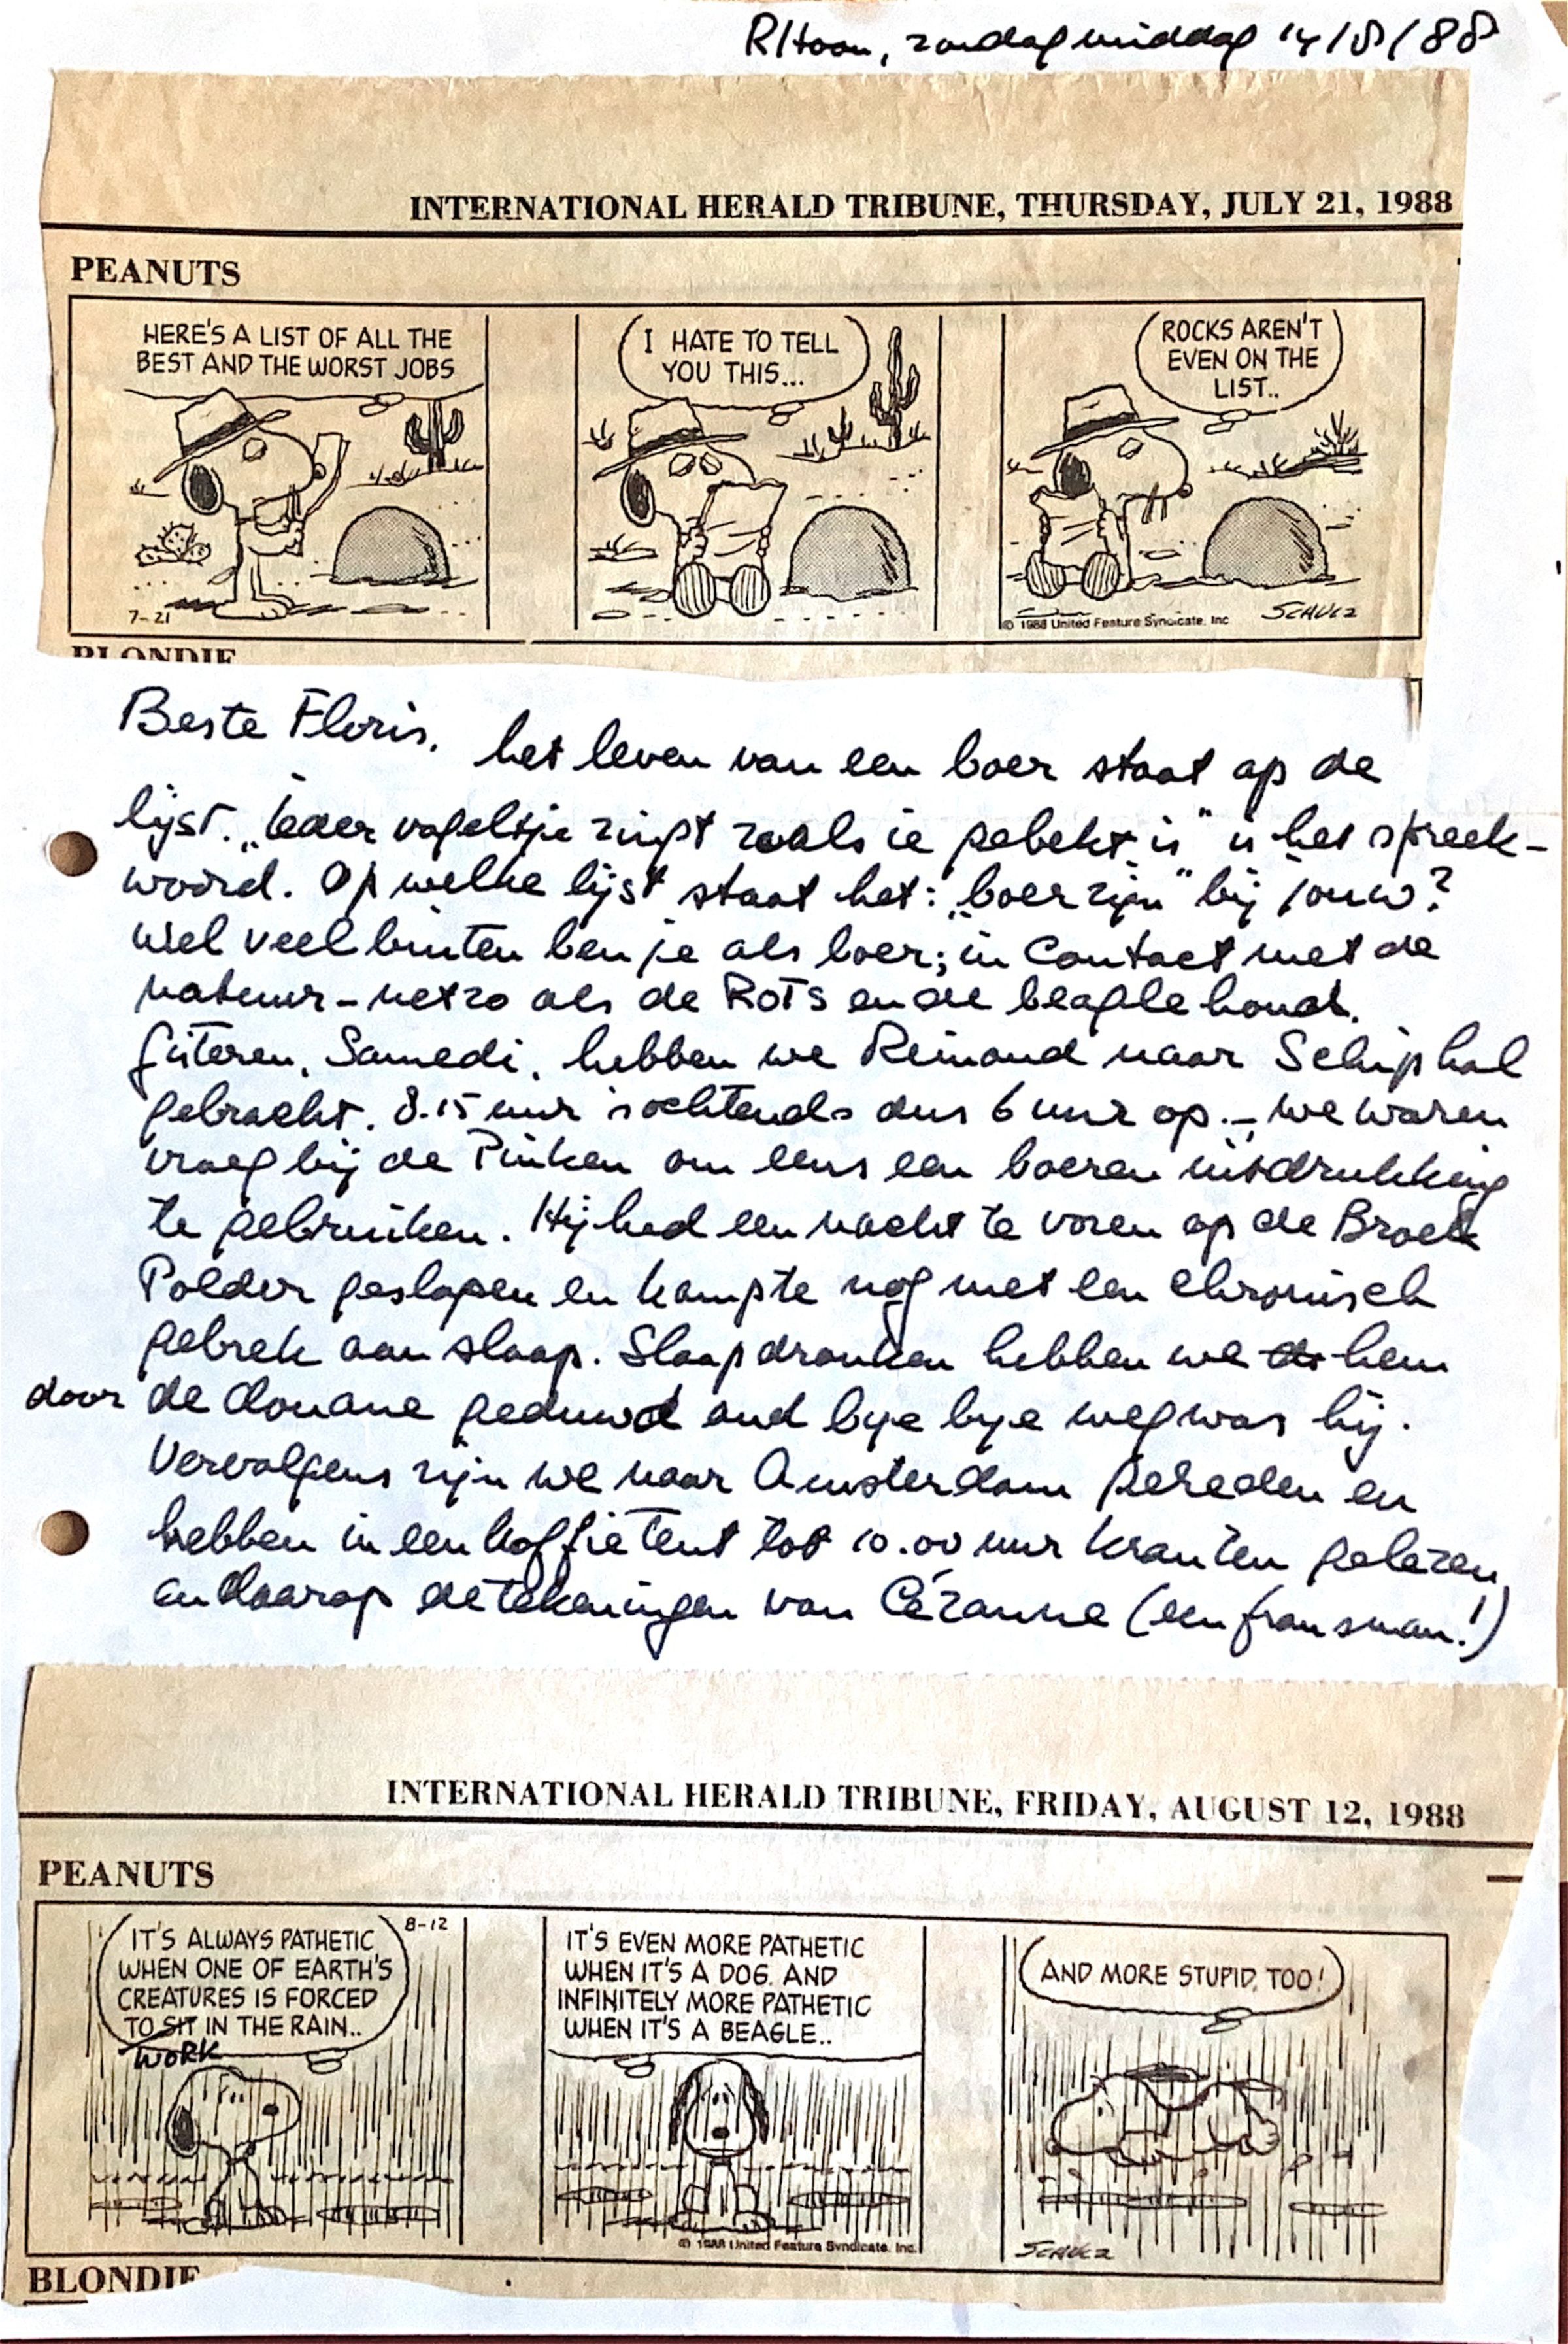 R/Hoon, zondagmiddag 14/8/88
INTERNATIONAL HERALD TRIBUNE, THURSDAY, JULY 21, 1988
PEANUTS
HERE'S A LIST OF ALL THE
BEST AND THE WORST JOBS
I HATE TO TELL
YOU THIS...
ROCKS AREN'T
EVEN ON THE
LIST..
7-21
© 1988 United Feature Syndicate, Inc
SCHULZ
BLONDIE
Beste Floris,
het leven van een boer staat op de
lijst. „Ieder vogeltje zingt zoals ie gebekt is" is het spreek-
woord. Op welke lijst staat het: „boer zijn" bij jouw?
Wel veel buiten ben je als boer; in contact met de
natuur - net zo als de ROTS en de beagle hond.
Gisteren, Samedi, hebben we Reinoud naar Schiphol
gebracht. 8.15 uur 's ochtends dus 6 uur op. - we waren
vroeg bij de Pinken om eens een boeren uitdrukking
te gebruiken. Hij had een nacht te voren op de Broek
Polder geslapen en kampte nog met een chronisch
gebrek aan slaap. Slaapdronken hebben we hem
door de douane geduwd and bye bye weg was hij.
Vervolgens zijn we naar Amsterdam gereden en
hebben in een koffietent tot 10.00 uur kranten gelezen,
en daarop de tekeningen van Cézanne (een fransman!)
INTERNATIONAL HERALD TRIBUNE, FRIDAY, AUGUST 12, 1988
PEANUTS
IT'S ALWAYS PATHETIC
WHEN ONE OF EARTH'S
CREATURES IS FORCED
TO SIT IN THE RAIN..
WORK
8-12
IT'S EVEN MORE PATHETIC
WHEN IT'S A DOG, AND
INFINITELY MORE PATHETIC
WHEN IT'S A BEAGLE..
AND MORE STUPID, TOO!
© 1988 United Feature Syndicate, Inc.
SCHULZ
BLONDIE